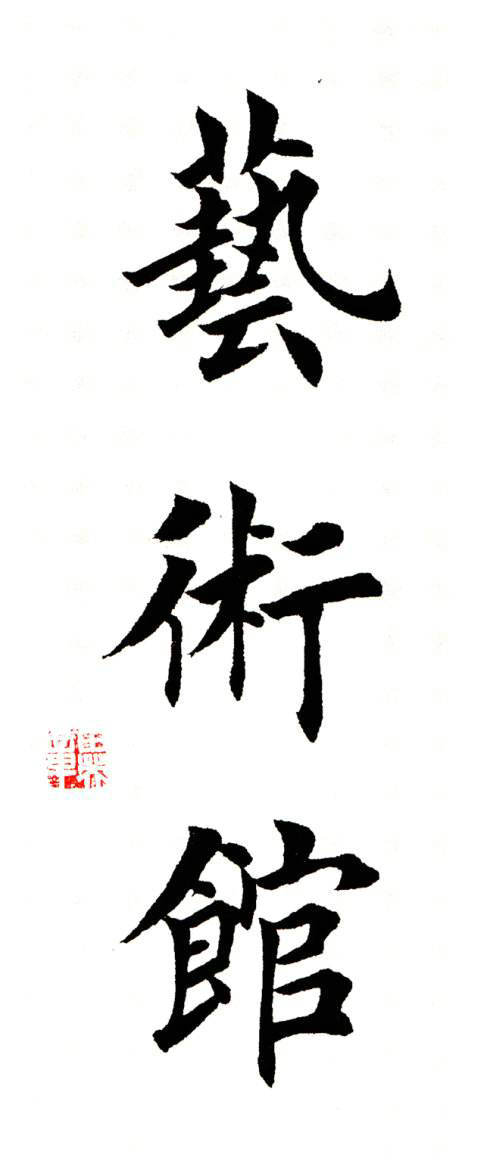 藝術館